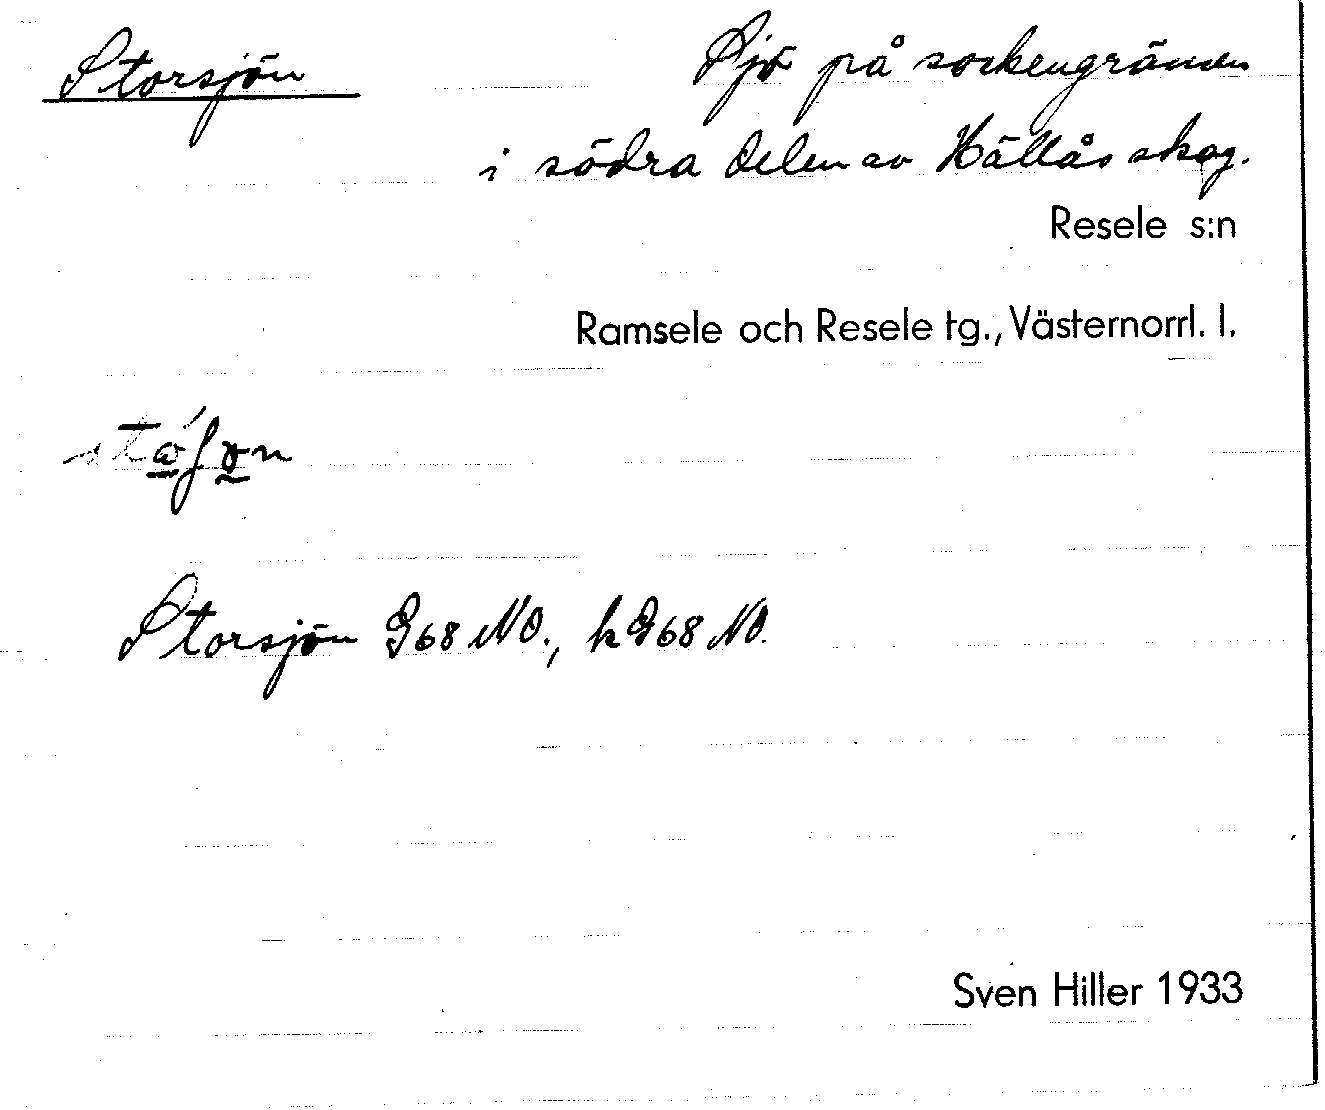 Storsjön
Sjö på sockengränsen
i södra delen av Hällås skog.
Resele s:n
Ramsele och Resele tg., Västernorrl. l.
Storsjön G68 NO., hG68 NO.
Sven Hiller 1933